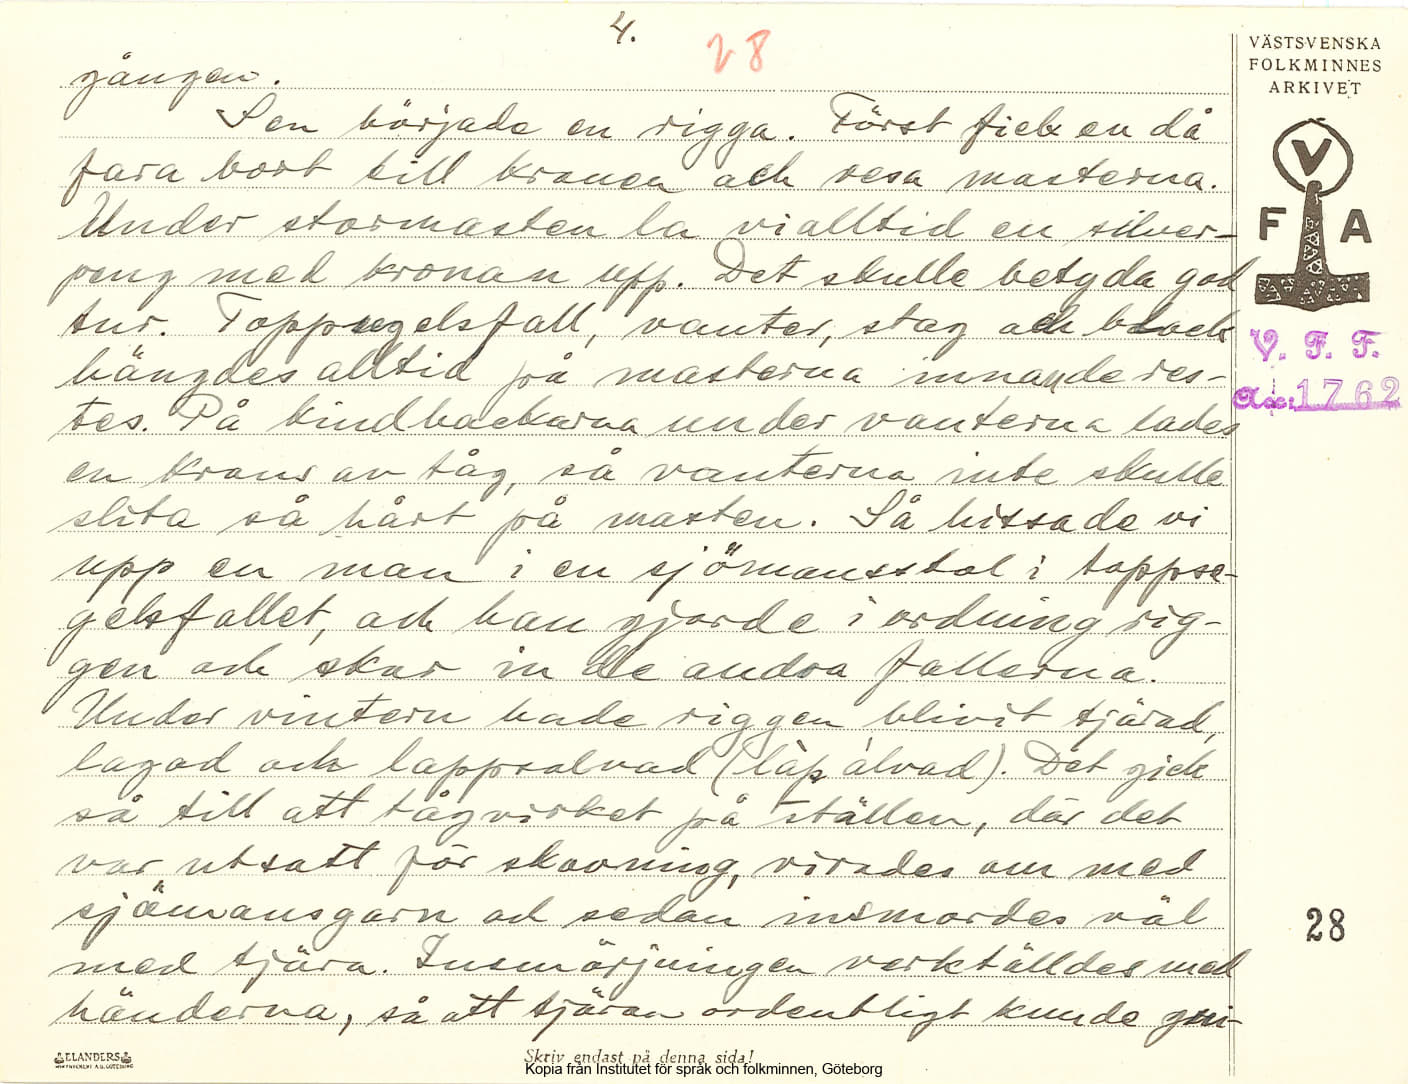 4.
28
gången.
Sen började en rigga. Först fick en då
fara bort till kranen och resa masterna.
Under stormasten la vi alltid en silver-
peng med kronan upp. Det skulle betyda god
tur. Toppsegelsfall, vanter, stag och block
hängdes alltid på masterna innan de res-
tes. På kindbackarna under vanterna lades
en krans av tåg, så vanterna inte skulle
slita så hårt på masten. Så hissade vi
upp en man i en sjömansstol i toppse-
gelsfallet, och han gjorde i ordning rig-
gen och skar in de andra fallerna.
Under vintern hade riggen blivit tjärad,
lagad och lappsalvad (làpsálvad). Det gick
så till att tågvirket på ställen, där det
var utsatt för skavning, virades om med
sjömansgarn och sedan insmordes väl
med tjära. Insmörjningen verkställdes med
händerna, så att tjäran ordentligt kunde gni-
VÄSTSVENSKA
FOLKMINNES
ARKIVET
V
F A
V. F. F.
Acc: 1762
28
ELANDERS
Skriv endast på denna sida!
Kopia från Institutet för språk och folkminnen, Göteborg